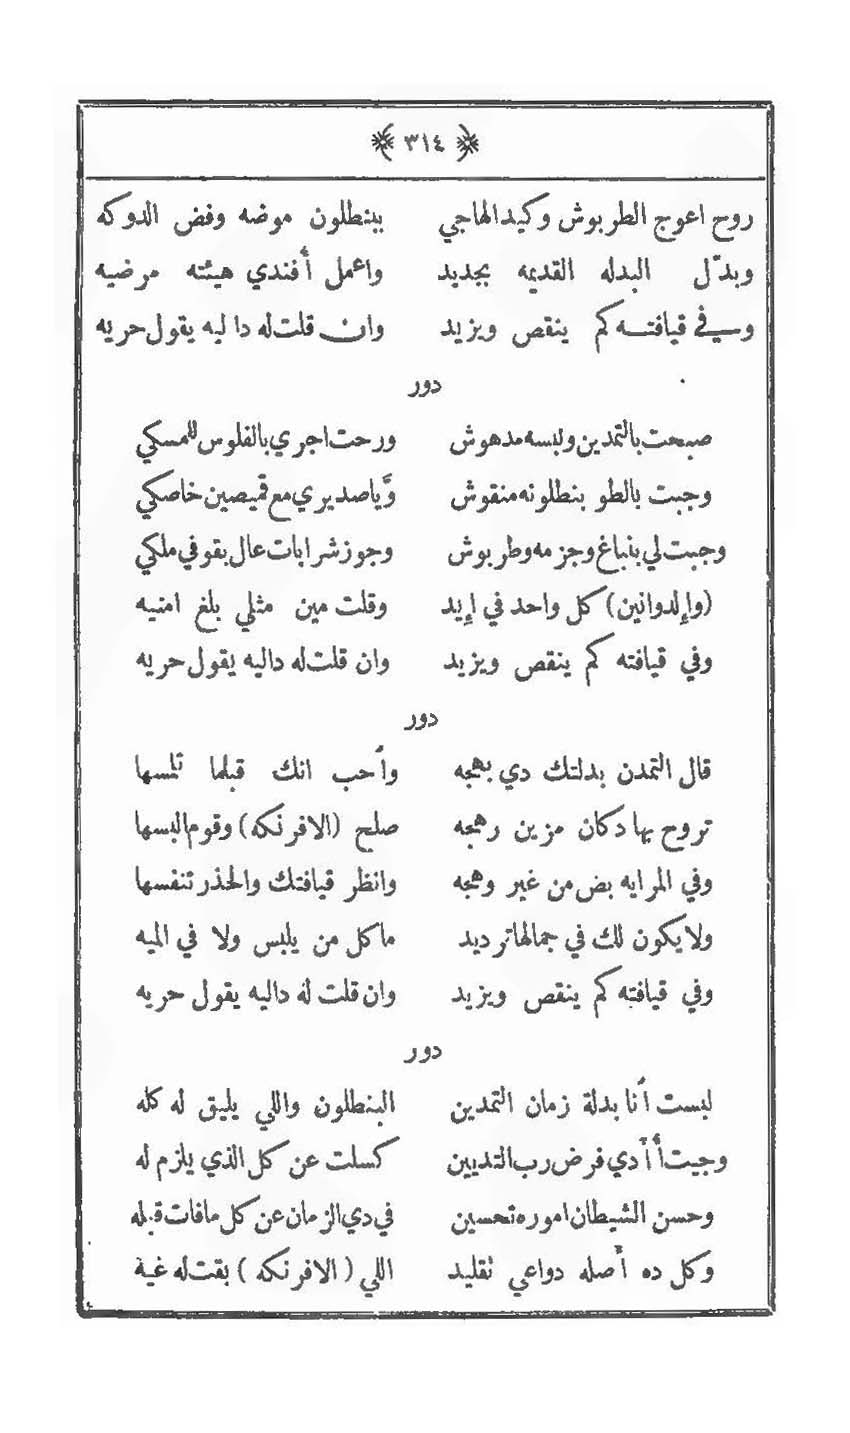 ٣١٤
روح اعوج الطربوش وكيد الهاجي ببنطلون موضه وفض الدوكه
وبدّل البدله القديمه بجديد واعمل أفندي هيئته مرضيه
وسيفي قيافته كم ينقص ويزيد وان قلت له دا ليه يقول حريه
دور
صبحت بالتمدين ولبسه مدهوش ورحت اجري بالفلوس للمسكي
وجبت بالطو بنطلونه منقوش ويّا صديري مع قميصين خاصكي
وجبت لي بنباغ وجزمه وطربوش وجوز شرابات عال بقو في ملكي
(وإلدوانين) كل واحد في إيد وقلت مين مثلي بلغ امنيه
وفي قيافته كم ينقص ويزيد وان قلت له داليه يقول حريه
دور
قال التمدن بدلتك دي بهجه وأحب انك قبلما تلمسها
تروح بها دكان مزين رهجه صلح (الافرنكه) وقوم البسها
وفي المرايه بض من غير وهجه وانظر قيافتك والحذر تنفسها
ولا يكون لك في جمالها ترديد ماكل من يلبس ولا في الميه
وفي قيافته كم ينقص ويزيد وان قلت له داليه يقول حريه
دور
لبست أنا بدلة زمان التمدين البنطلون واللي يليق له كله
وجيت أأدي فرض رب التديين كسلت عن كل الذي يلزم له
وحسن الشيطان اموره تحسين في دي الزمان عن كل مافات قبله
وكل ده أصله دواعي تقليد اللي (الافرنكه) بقت له غية